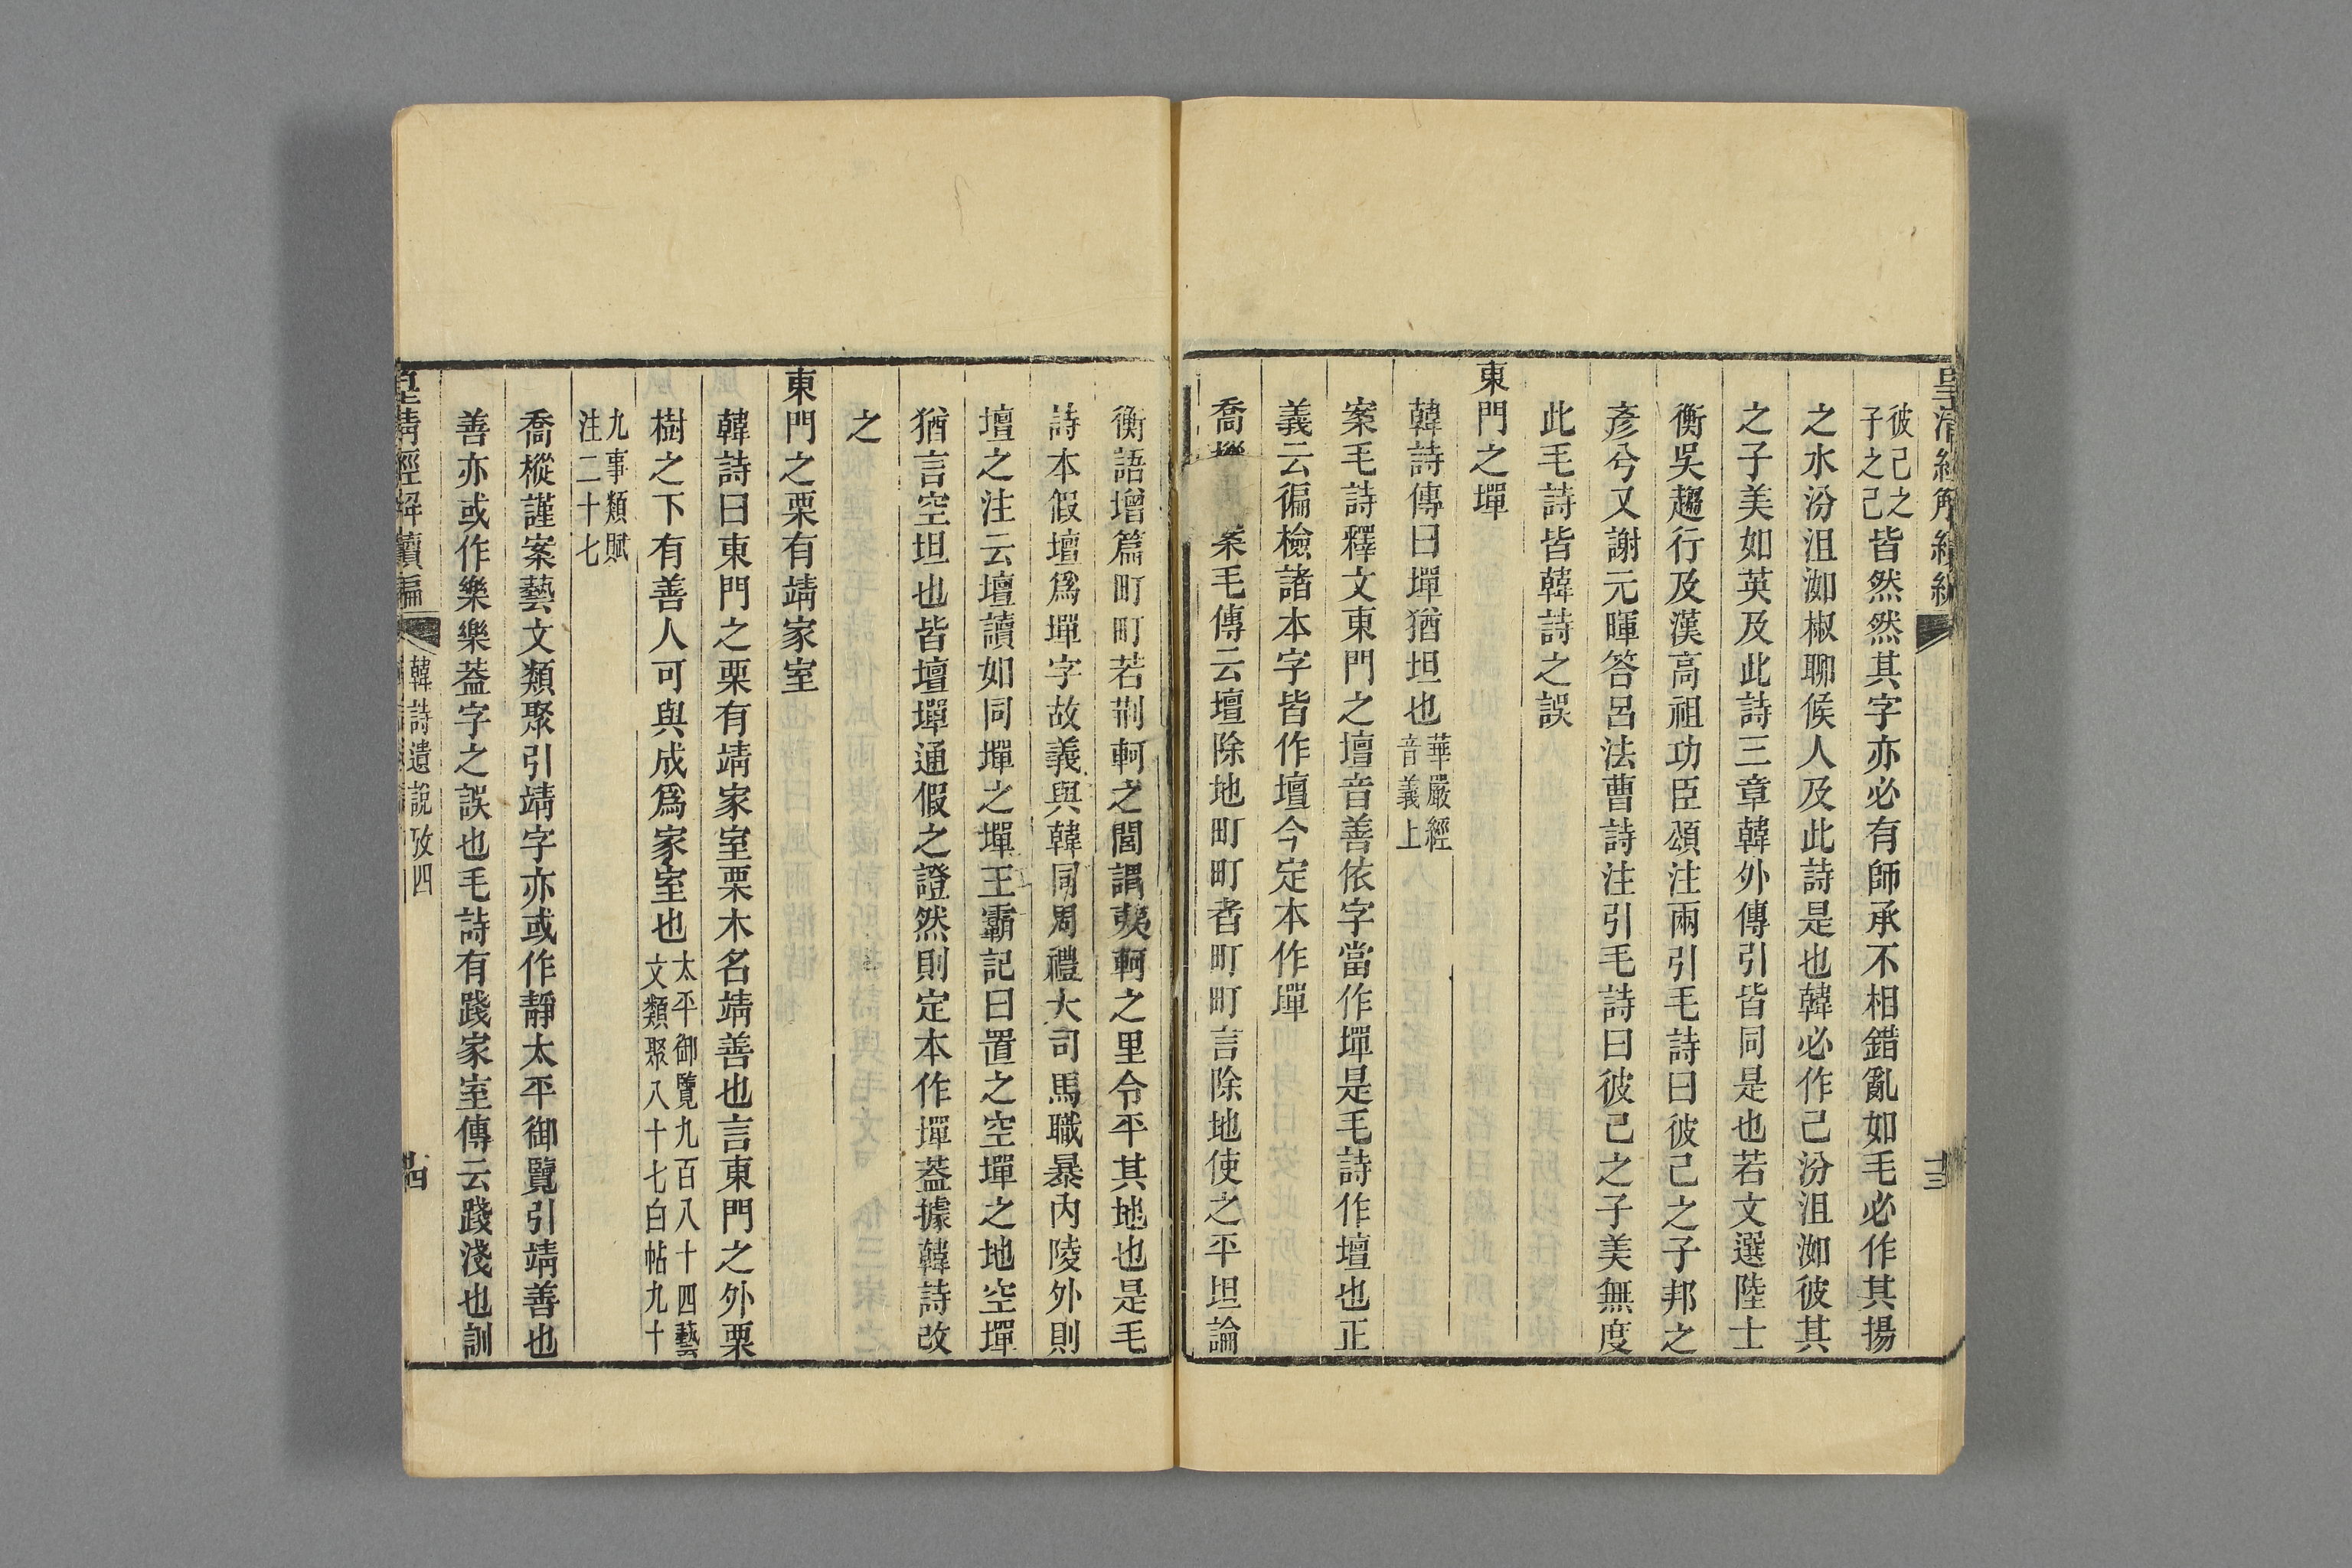 皇清經解續編
十三
彼己之子之己皆然然其字亦必有師承不相錯亂如毛必作其揚
之水汾沮洳椒聊候人及此詩是也韓必作己汾沮洳彼其
之子美如英及此詩三章韓外傳引皆同是也若文選陸士
衡吳趨行及漢高祖功臣頌注兩引毛詩曰彼己之子邦之
彥兮又謝元暉答呂法曹詩注引毛詩曰彼己之子美無度
此毛詩皆韓詩之誤
東門之墠
韓詩傳曰墠猶坦也華嚴經音義上
案毛詩釋文東門之壇音善依字當作墠是毛詩作壇也正
義云徧檢諸本字皆作壇今定本作墠
喬樅 案毛傳云壇除地町町者町町言除地使之平坦論
衡語增篇町町若荆軻之閭謂夷軻之里令平其地也是毛
詩本假壇爲墠字故義與韓同周禮大司馬職暴內陵外則
壇之注云壇讀如同墠之墠王霸記曰置之空墠之地空墠
猶言空坦也皆壇墠通假之證然則定本作墠葢據韓詩改
之
東門之栗有靖家室
韓詩曰東門之栗有靖家室栗木名靖善也言東門之外栗
樹之下有善人可與成爲家室也太平御覽九百八十四藝文類聚八十七白帖九十
九事類賦注二十七
喬樅謹案藝文類聚引靖字亦或作靜太平御覽引靖善也
善亦或作樂樂葢字之誤也毛詩有踐家室傳云踐淺也訓
皇清經解續編
韓詩遺說攷四
十四